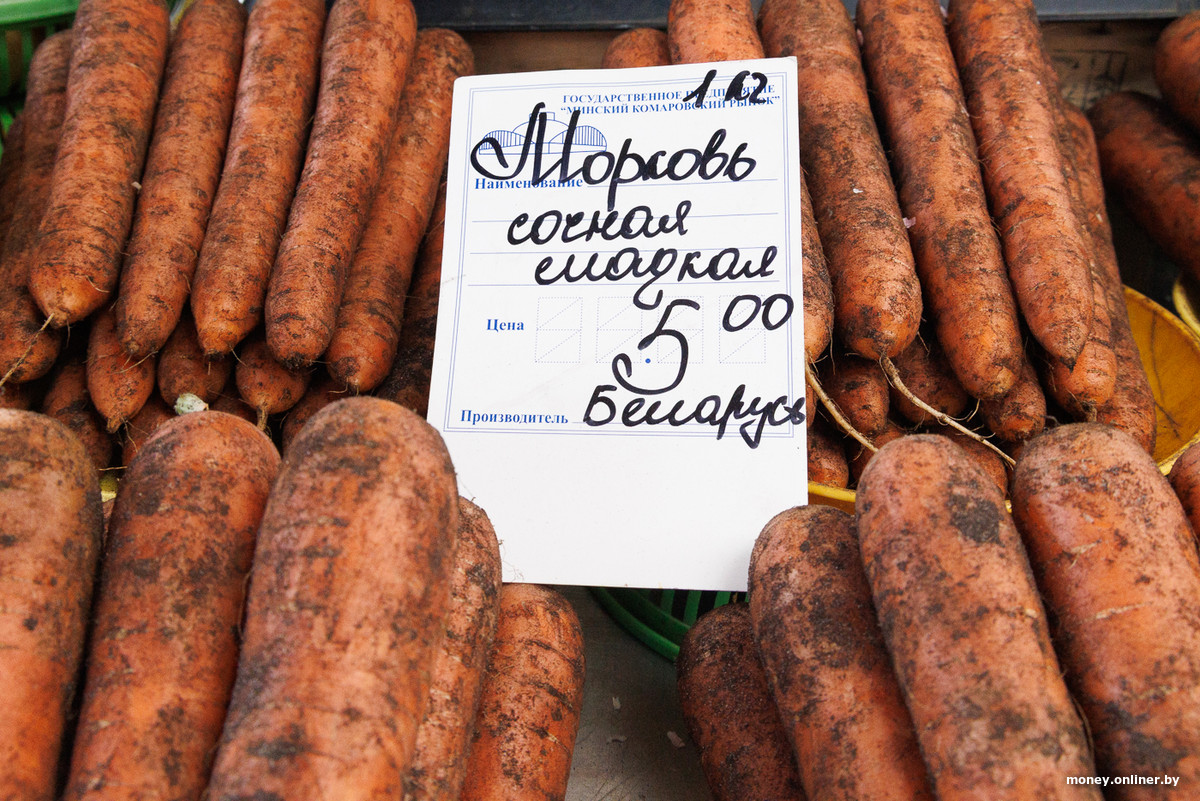 1 кг
ГОСУДАРСТВЕННОЕ ПРЕДПРИЯТИЕ
“МИНСКИЙ КОМАРОВСКИЙ РЫНОК”
Морковь
Наименование
сочная
сладкая
Цена 5 00
Производитель Беларусь
money.onliner.by